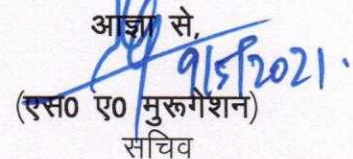 आज्ञा से,
9/5/2021.
(एस0 ए0 मुरूगेशन)
सचिव